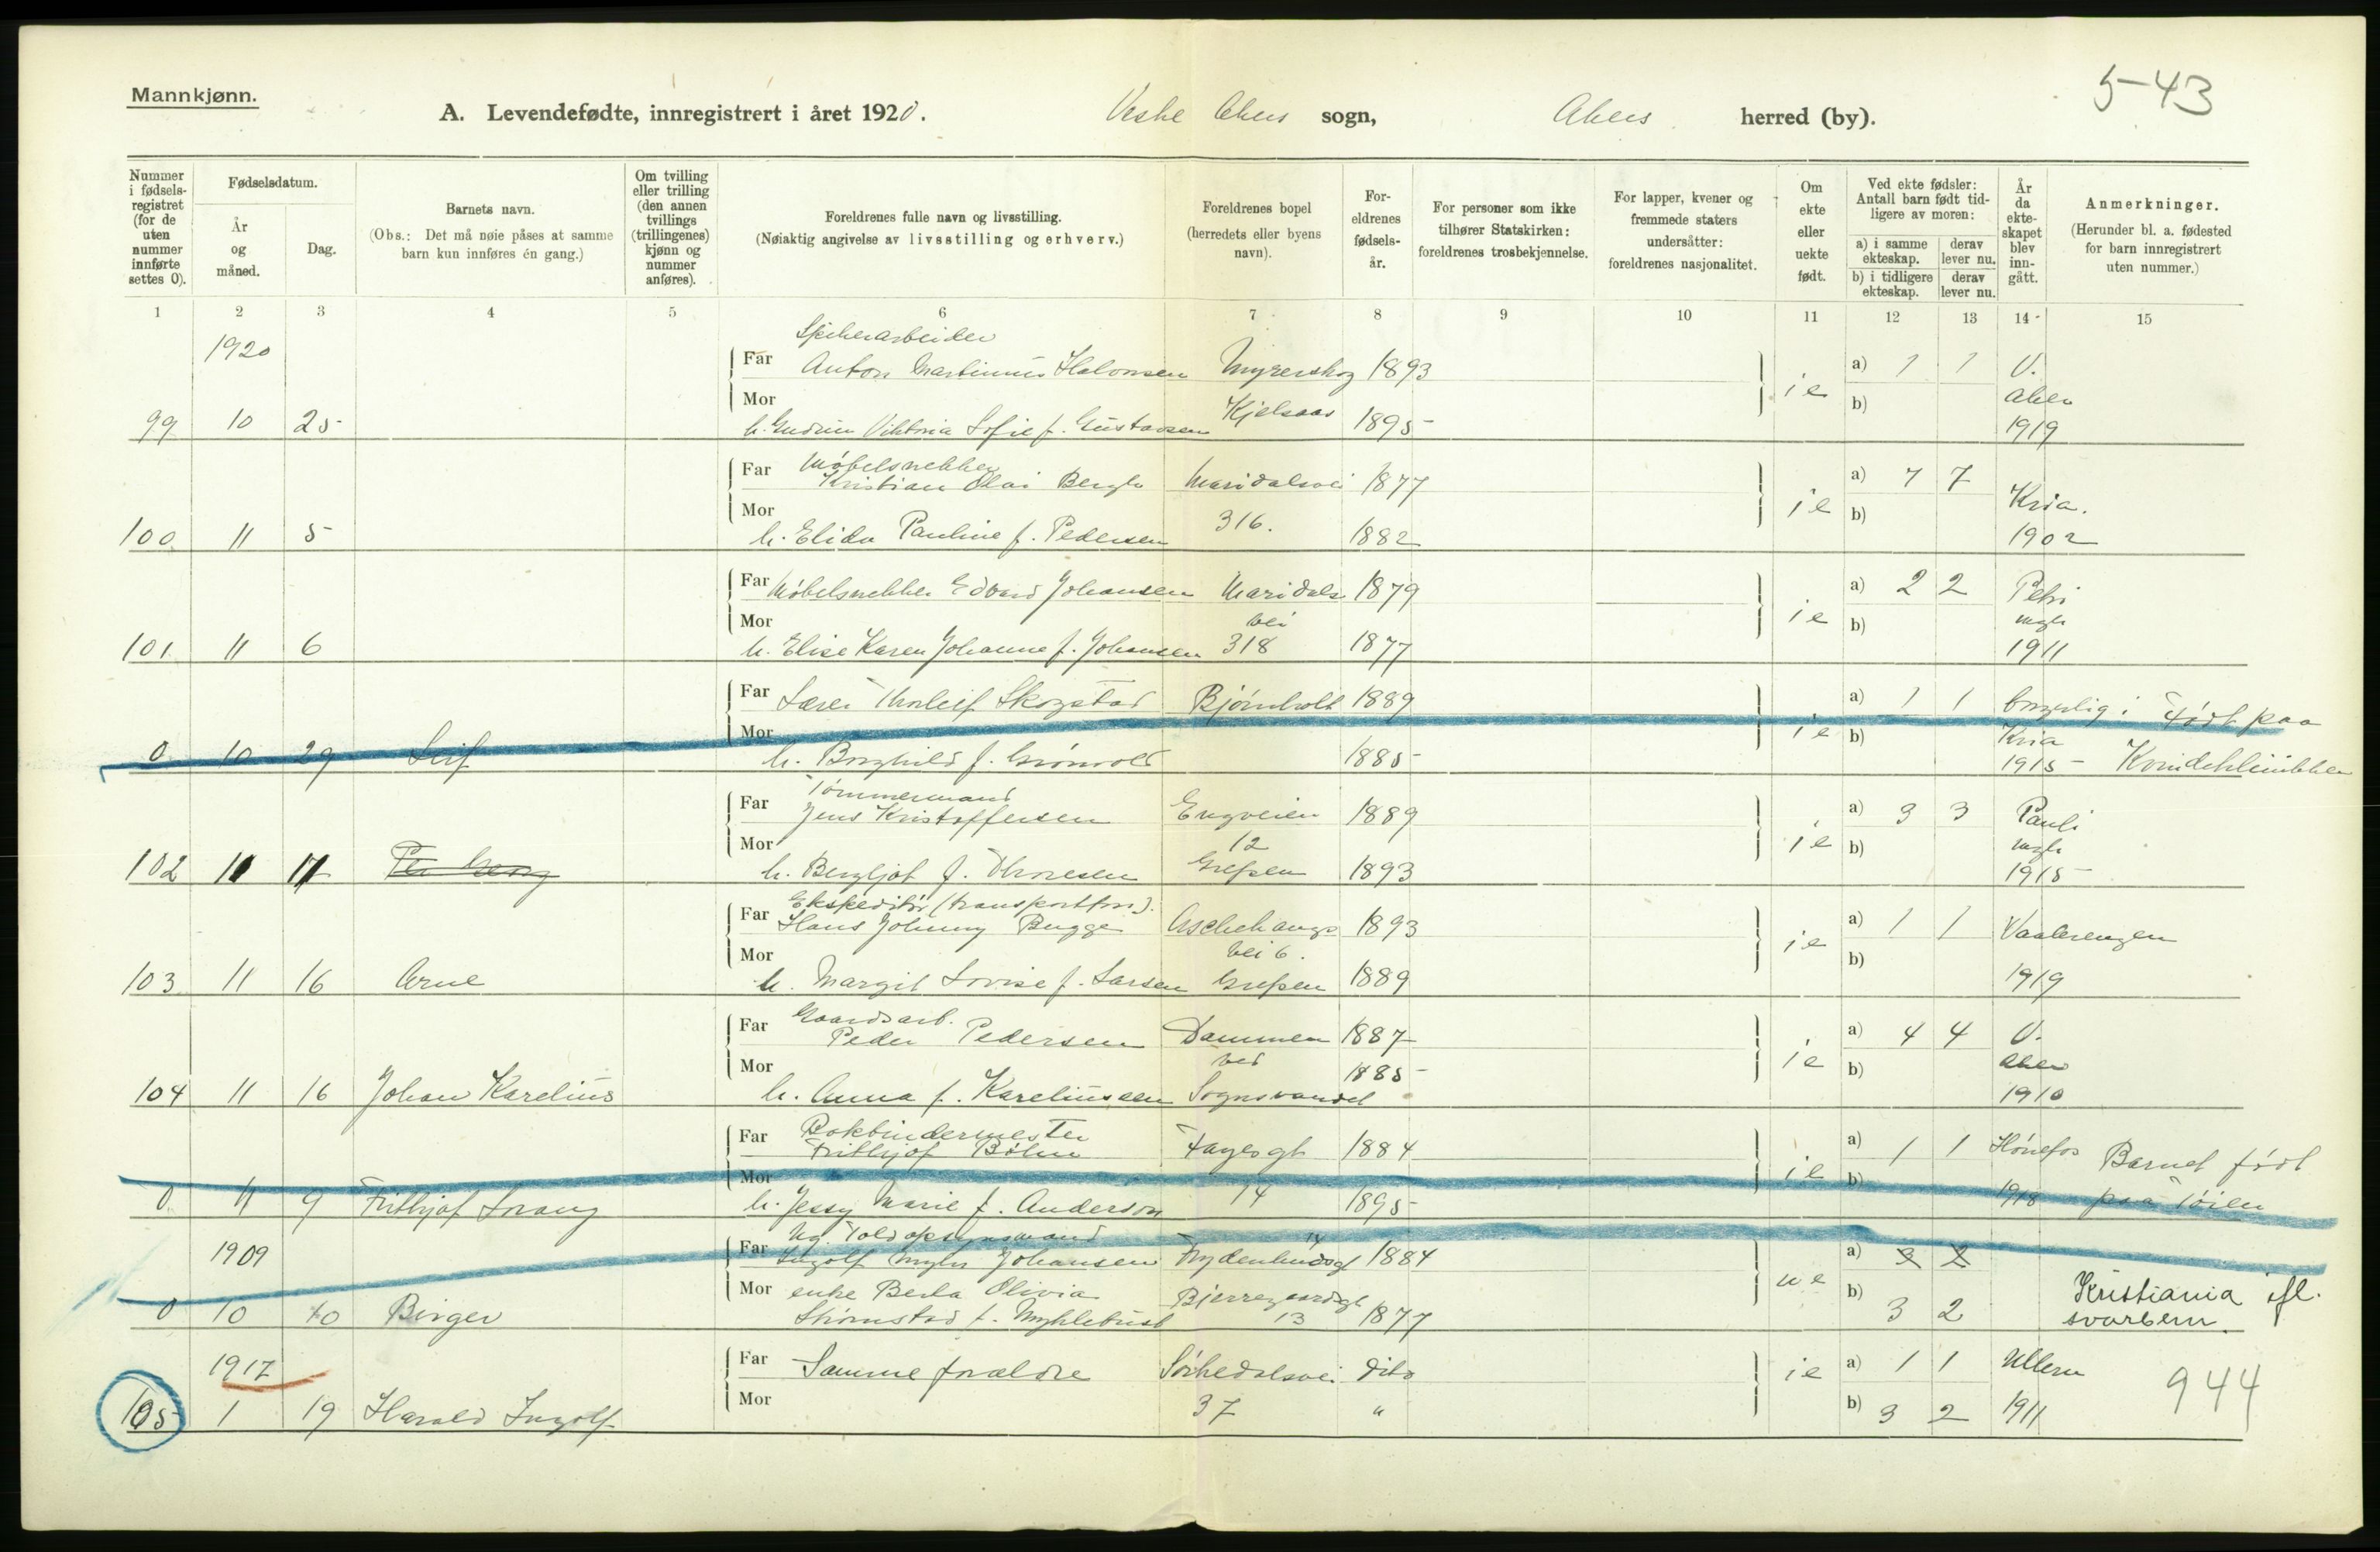 Mannkjønn.
5-43
A. Levendefødte, innregistrert i året 1920. Vestre Aker sogn, Aker herred (by).
Nummer i fødsels-registret (for de uten nummer innførte settes 0).
Fødselsdatum.
År og måned.
Dag.
Barnets navn.
(Obs.: Det må nøie påses at samme barn kun innføres én gang.)
Om tvilling eller trilling (den annen tvillings (trillingenes) kjønn og nummer anføres).
Foreldrenes fulle navn og livsstilling.
(Nøiaktig angivelse av livsstilling og erhverv.)
Foreldrenes bopel (herredets eller byens navn).
For-eldrenes fødsels-år.
For personer som ikke tilhører Statskirken: foreldrenes trosbekjennelse.
For lapper, kvener og fremmede staters undersåtter: foreldrenes nasjonalitet.
Om ekte eller uekte født.
Ved ekte fødsler: Antall barn født tid-ligere av moren:
a) i samme ekteskap.
derav lever nu.
b) i tidligere ekteskap.
derav lever nu.
År da ekte-skapet blev inn-gått.
Anmerkninger.
(Herunder bl. a. fødested for barn innregistrert uten nummer.)
1 2 3 4 5 6 7 8 9 10 11 12 13 14 15
1920
Far Anton Martinius Halvorsen 1893 a) 1 1 V.
Mor Kjelsaas i e b) Aker
99 10 25 h. Gudrun Viktoria Sofie f. Gustavsen 1895 1919
Møbelsnekker
Far Kristian Olai Bergh Maridalsvei 1877 a) 7 7
Mor 316. i e b) Kria.
100 11 5 h. Elida Pauline f. Pedersen 1882 1902
Far Møbelsnekker Edvard Johansen Maridals 1879 a) 2 2 Petri
Mor vei i e b) mgh
101 11 6 h. Elise Karen Johanne f. Johansen 318 1877 1911
Far Lærer Thorleif Skogstad Bjørnholt 1889 a) 1 1 borgerlig i Født paa
Mor i e b) Kria
0 10 29 Leif h. Borghild f. Grønvold 1885 1915 Kvindeklinikken
Tømmermand
Far Jens Kristoffersen Engveien 1889 a) 3 3 Pauli
Mor 12 i e b) mgh
102 11 17 h. Bergljot f. Thoresen Grefsen 1893 1915
Ekspeditør (transportforr.).
Far Hans Johnny Bugge Aschehougs 1893 a) 1 1 Vaalerengen
Mor vei 6. i e b)
103 11 16 Arne h. Margit Lovise f. Larsen Grefsen 1889 1919
Gaardsarb.
Far Peder Pedersen Dammen 1887 a) 4 4 V.
Mor ved 1885 i e b) Aker
104 11 16 Johan Karelius h. Anna f. Kareliussen Sognsvandet 1910
Bokbindermester
Far Frithjof Böhn Fayesgt 1884 a) 1 1 Hønefos Barnet født
Mor 14 i e b)
0 11 9 Frithjof h. Jessy Marie f. Anderson 1895 1918 paa Tøien
Toldopsynsmand
1909 Far Ingolf Johansen 14 1884 a) 3 2
Mor enke Berta Olivia Bjerregaardsgt u e b) Kristiania ifl.
0 10 10 Birger Strømstad f. Myklebust 13 1877 3 2 svarbrev.
1917 Far Samme forældre Sørkedalsvei dito i e a) 1 1 Ullern 944
105 1 19 Harald Ingolf Mor 37 " b) 3 2 1911